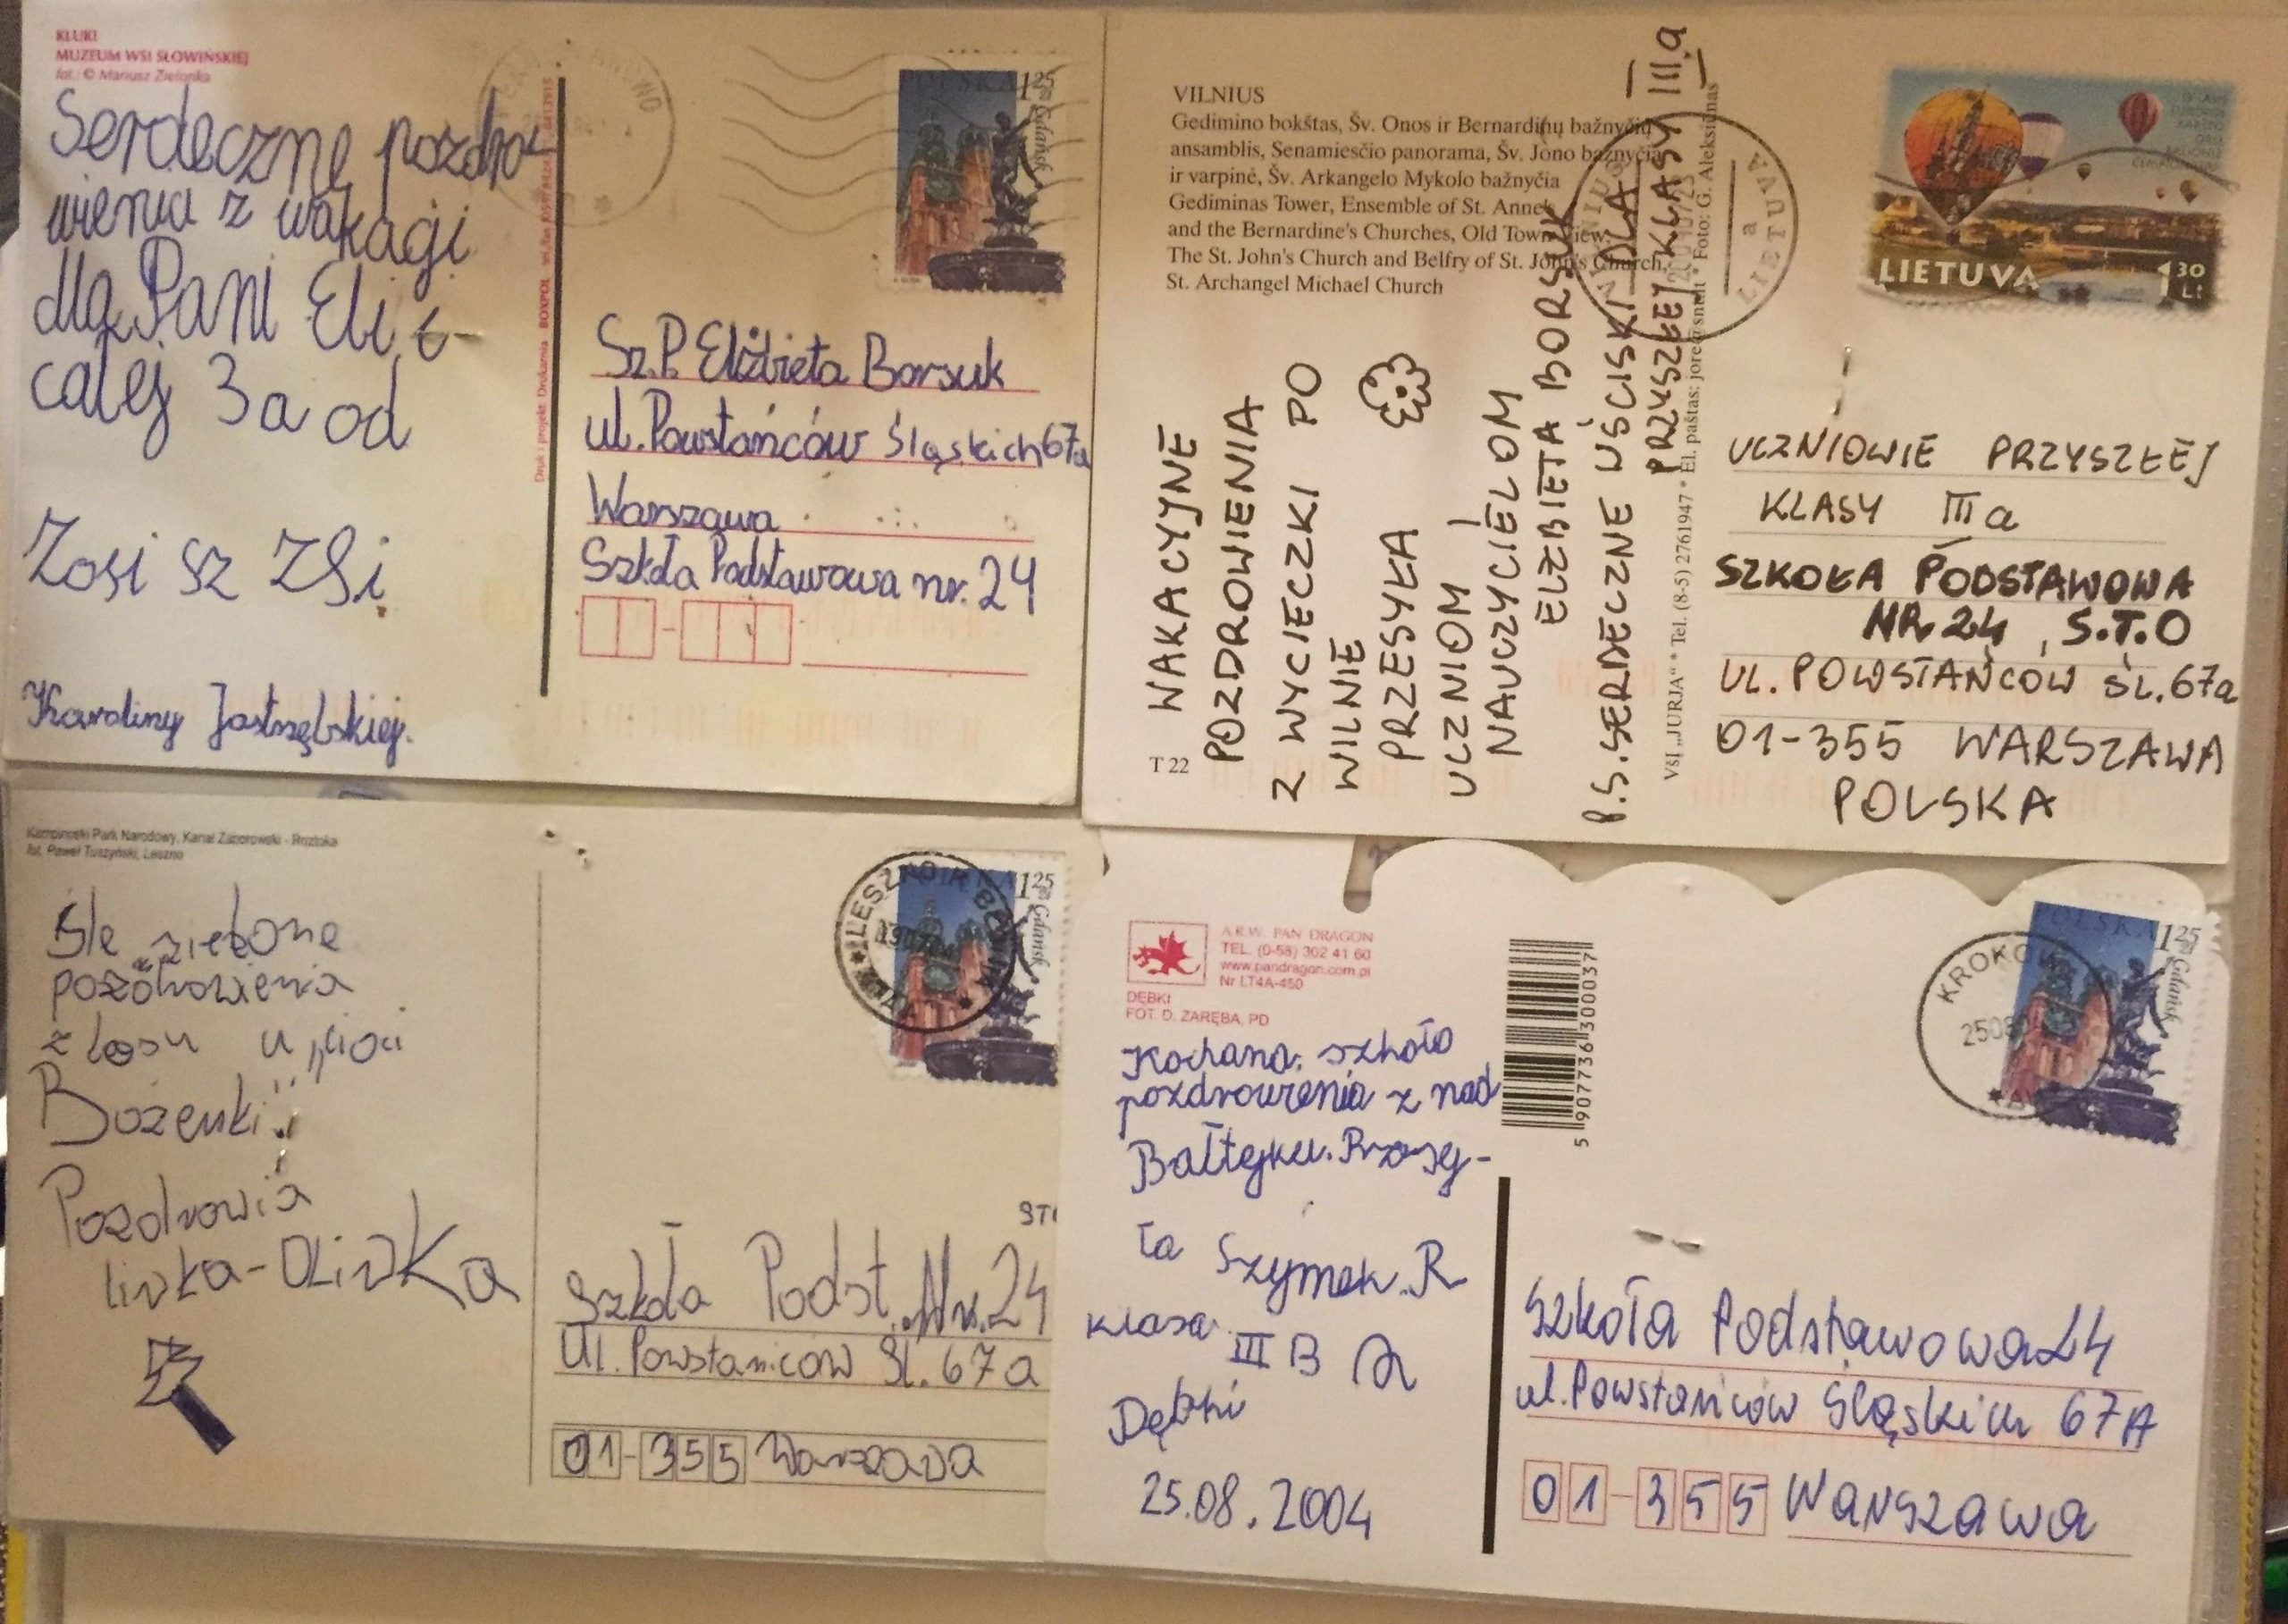 KLUKI
MUZEUM WSI SŁOWIŃSKIEJ
fot.: © Mariusz Zielonka
Serdeczne pozdro
wienia z wakagi
dla Pani Eli i
całej 3a od
Zosi
Karoliny Jastrzębskiej.
Druk i projekt: Drukarnia BOXPOL
POLSKA 1 25
Gdańsk
Sz.P. Elżbieta Borsuk
ul. Powstańców Śląskich 67a
Warszawa
Szkoła Podstawowa nr. 24
VILNIUS
Gedimino bokštas, Šv. Onos ir Bernardinų bažnyčių
ansamblis, Senamiesčio panorama, Šv. Jono bažnyčia
ir varpinė, Šv. Arkangelo Mykolo bažnyčia
Gediminas Tower, Ensemble of St. Anne's
and the Bernardine's Churches, Old Town View,
The St. John's Church and Belfry of St. John's Church,
St. Archangel Michael Church
WAKACYJNE
POZDROWIENIA
Z WYCIECZKI PO
WILNIE
PRZESYŁA
UCZNIOM I
NAUCZYCIELOM
ELŻBIETA BORSUK
P.S. SERDECZNE UŚCISKI DLA
PRZYSZŁEJ KLASY III a
T 22
VšĮ „JURJA“ * Tel. (8-5) 2761947 * El. paštas: jore@ * Foto: G. Aleksiūnas
VILNIUS
a
LIETUVA
LIETUVA 1 30 Lt
UCZNIOWIE PRZYSZŁEJ
KLASY III a
SZKOŁA PODSTAWOWA
NR 24, S.T.O
UL. POWSTAŃCÓW ŚL. 67a
01-355 WARSZAWA
POLSKA
Kampinoski Park Narodowy, Kanał Zaborowski - Roztoka
fot. Paweł Tuszyński, Leszno
Śle zielone
pozdrowienia
z lasu u „cioci
Bożenki"
Pozdrowia
livka-OLivKa
LESZNO K. BŁONIA
1 25
Gdańsk
STO
Szkoła Podst. Nr. 24
Ul. Powstańców Śl. 67a
01-355 Warszawa
A.R.W. PAN DRAGON
TEL. (0-58) 302 41 60
www.pandragon.com.pl
Nr LT4A-450
DĘBKI
FOT. D. ZARĘBA, PD
Kochana szkoło
pozdrowienia z nad
Bałtyku. Przesy-
ła Szymek. R
klasa III B
Dębki
25.08.2004
5 907736 300037
KROKOWA
2508
POLSKA 1 25
Gdańsk
Szkoła Podstawowa 24
ul. Powstańców Śląskich 67A
01-355 Warszawa